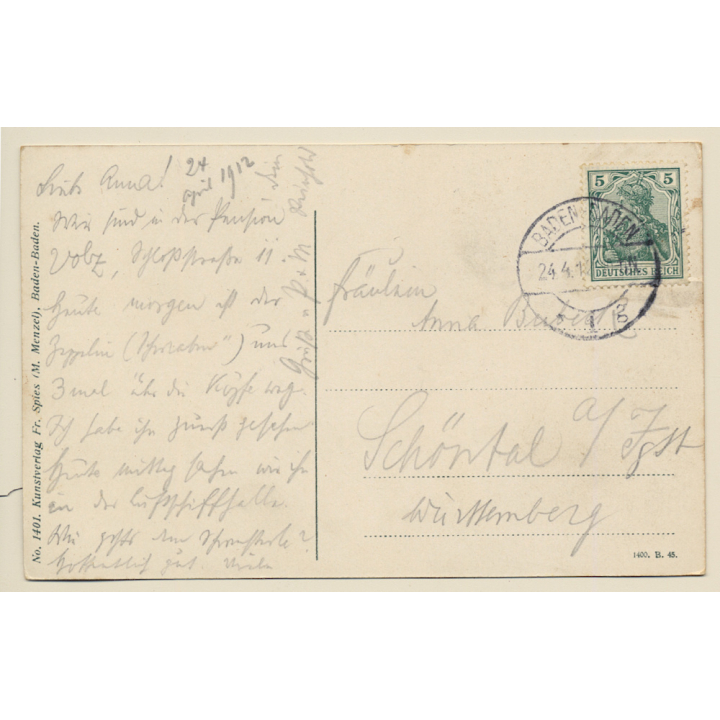 Liebe Anna!
24
April 1912
Wir sind in der Pension
Volz, Schloßstraße 11.
Heute morgen ist der
Zeppelin („Schwaben“) uns
3 mal über die Köpfe weg.
Ich habe ihn zuerst gesehen
Heute mittag sahen wir ihn
in der Luftschiffhalle.
Wie gehts dem
Hoffentlich gut. Viele
Grüße
Fräulein
Anna
Schöntal a/ Jgst
Württemberg
5 5
DEUTSCHES REICH
BADEN-BADEN
24.4.1
No. 1401. Kunstverlag Fr. Spies (M. Menzel), Baden-Baden.
1400. B. 45.